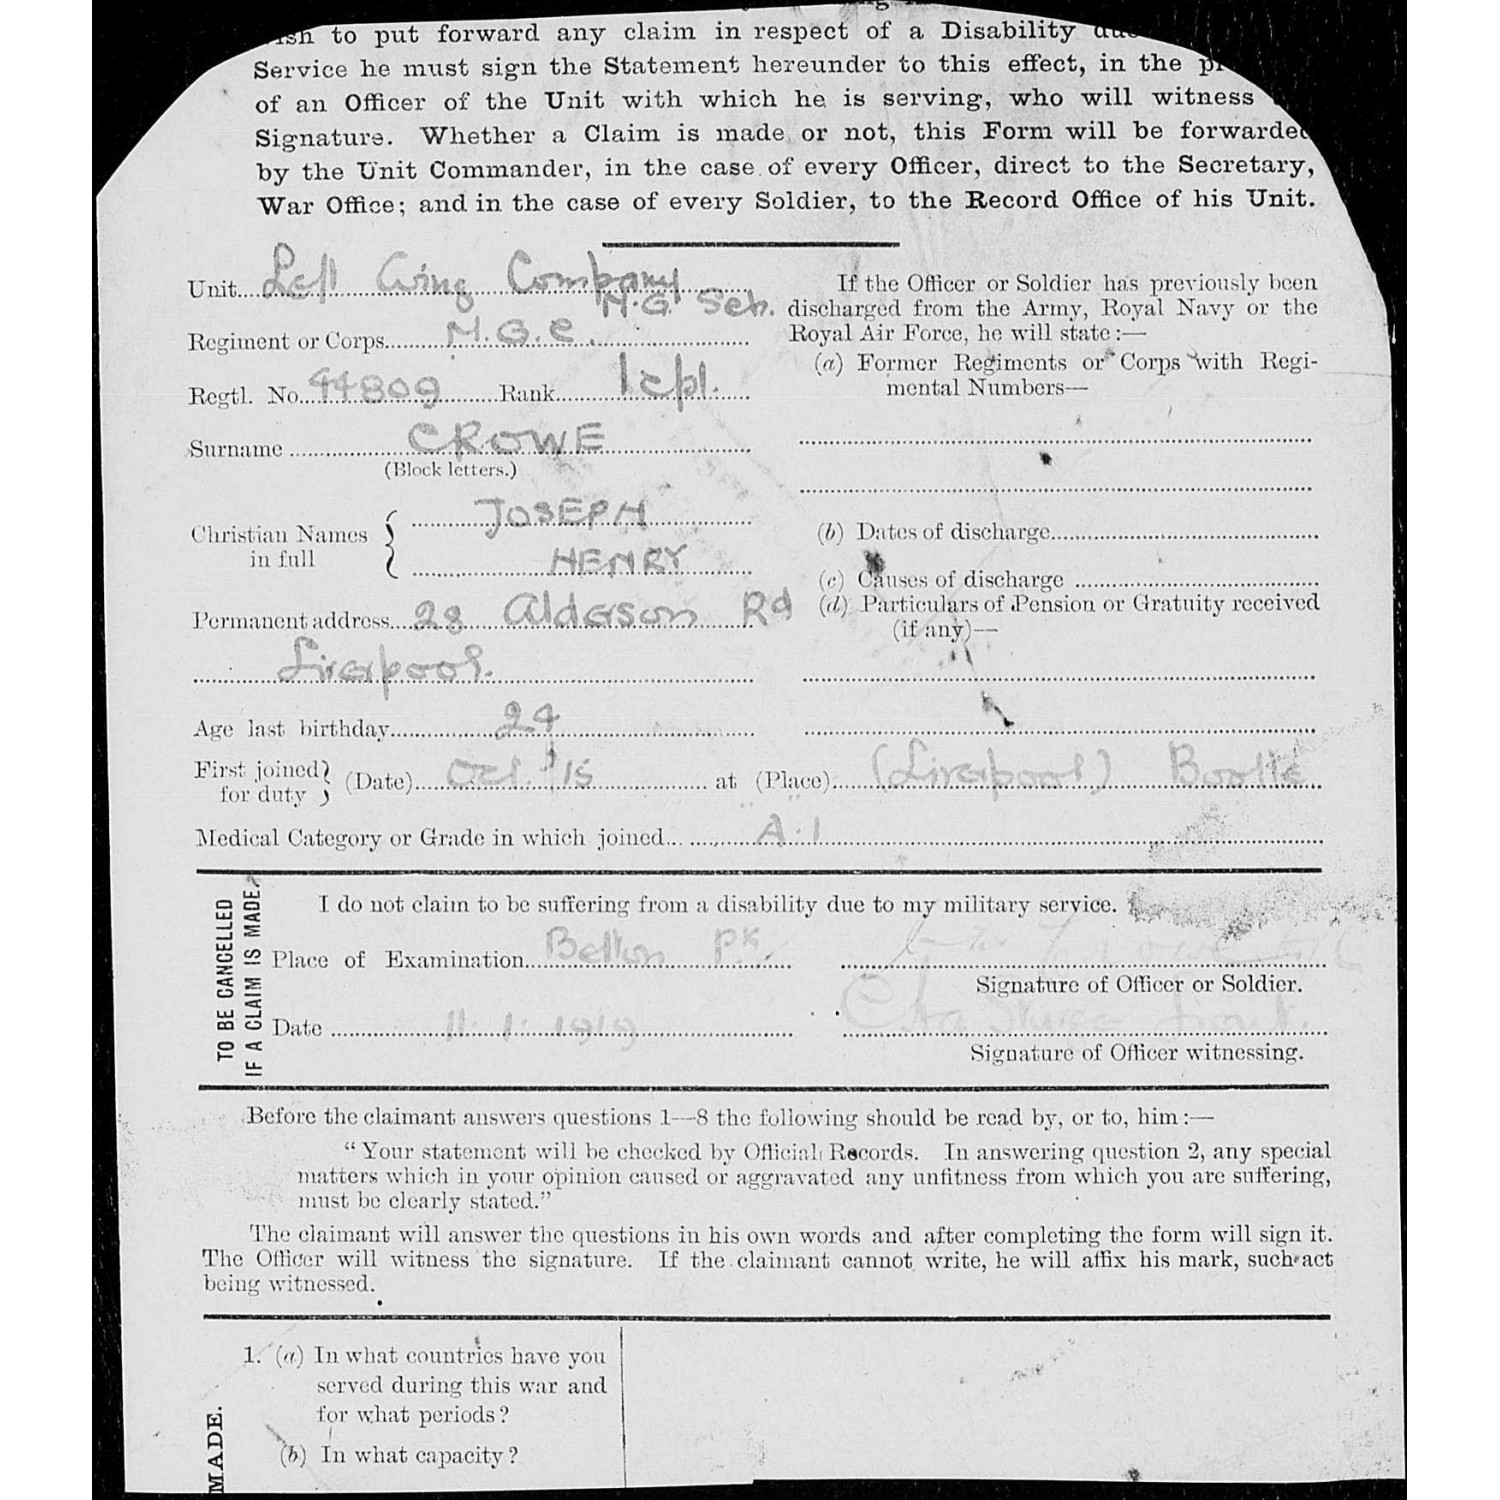 to put forward any claim in respect of a Disability
Service he must sign the Statement hereunder to this effect, in the
of an Officer of the Unit with which he is serving, who will witness
Signature. Whether a Claim is made or not, this Form will be forwarded
by the Unit Commander, in the case of every Officer, direct to the Secretary,
War Office; and in the case of every Soldier, to the Record Office of his Unit.
Unit... Left Wing Company
M.G. Sch.
Regiment or Corps... M.G.C.
Regtl. No... 44809 ...Rank... lcpl.
Surname ... CROWE
(Block letters.)
Christian Names
in full
JOSEPH
HENRY
Permanent address... 28 Alderson Rd
Liverpool.
Age last birthday... 24
If the Officer or Soldier has previously been
discharged from the Army, Royal Navy or the
Royal Air Force, he will state:—
(a) Former Regiments or Corps with Regi-
mental Numbers—
(b) Dates of discharge...
(c) Causes of discharge ...
(d) Particulars of Pension or Gratuity received
(if any)—
First joined
for duty
(Date)... Oct. '15 ... at (Place)... (Liverpool) Bootle
Medical Category or Grade in which joined... A.1
TO BE CANCELLED
IF A CLAIM IS MADE.
I do not claim to be suffering from a disability due to my military service.
Place of Examination... Belton Pk.
Signature of Officer or Soldier.
Date ... 11.1.1919
Signature of Officer witnessing.
Before the claimant answers questions 1—8 the following should be read by, or to, him:—
"Your statement will be checked by Official Records. In answering question 2, any special
matters which in your opinion caused or aggravated any unfitness from which you are suffering,
must be clearly stated."
The claimant will answer the questions in his own words and after completing the form will sign it.
The Officer will witness the signature. If the claimant cannot write, he will affix his mark, such act
being witnessed.
MADE.
1. (a) In what countries have you
served during this war and
for what periods?
(b) In what capacity?